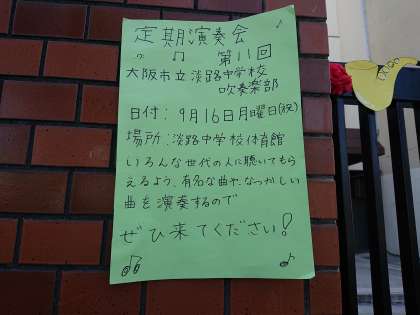 定期演奏会
第11回
大阪市立淡路中学校
吹奏楽部
日付：9月16日月曜日(祝)
場所：淡路中学校体育館
いろんな世代の人に聴いてもら
えるよう、有名な曲や、なつかしい
曲を演奏するので
ぜひ来てください！